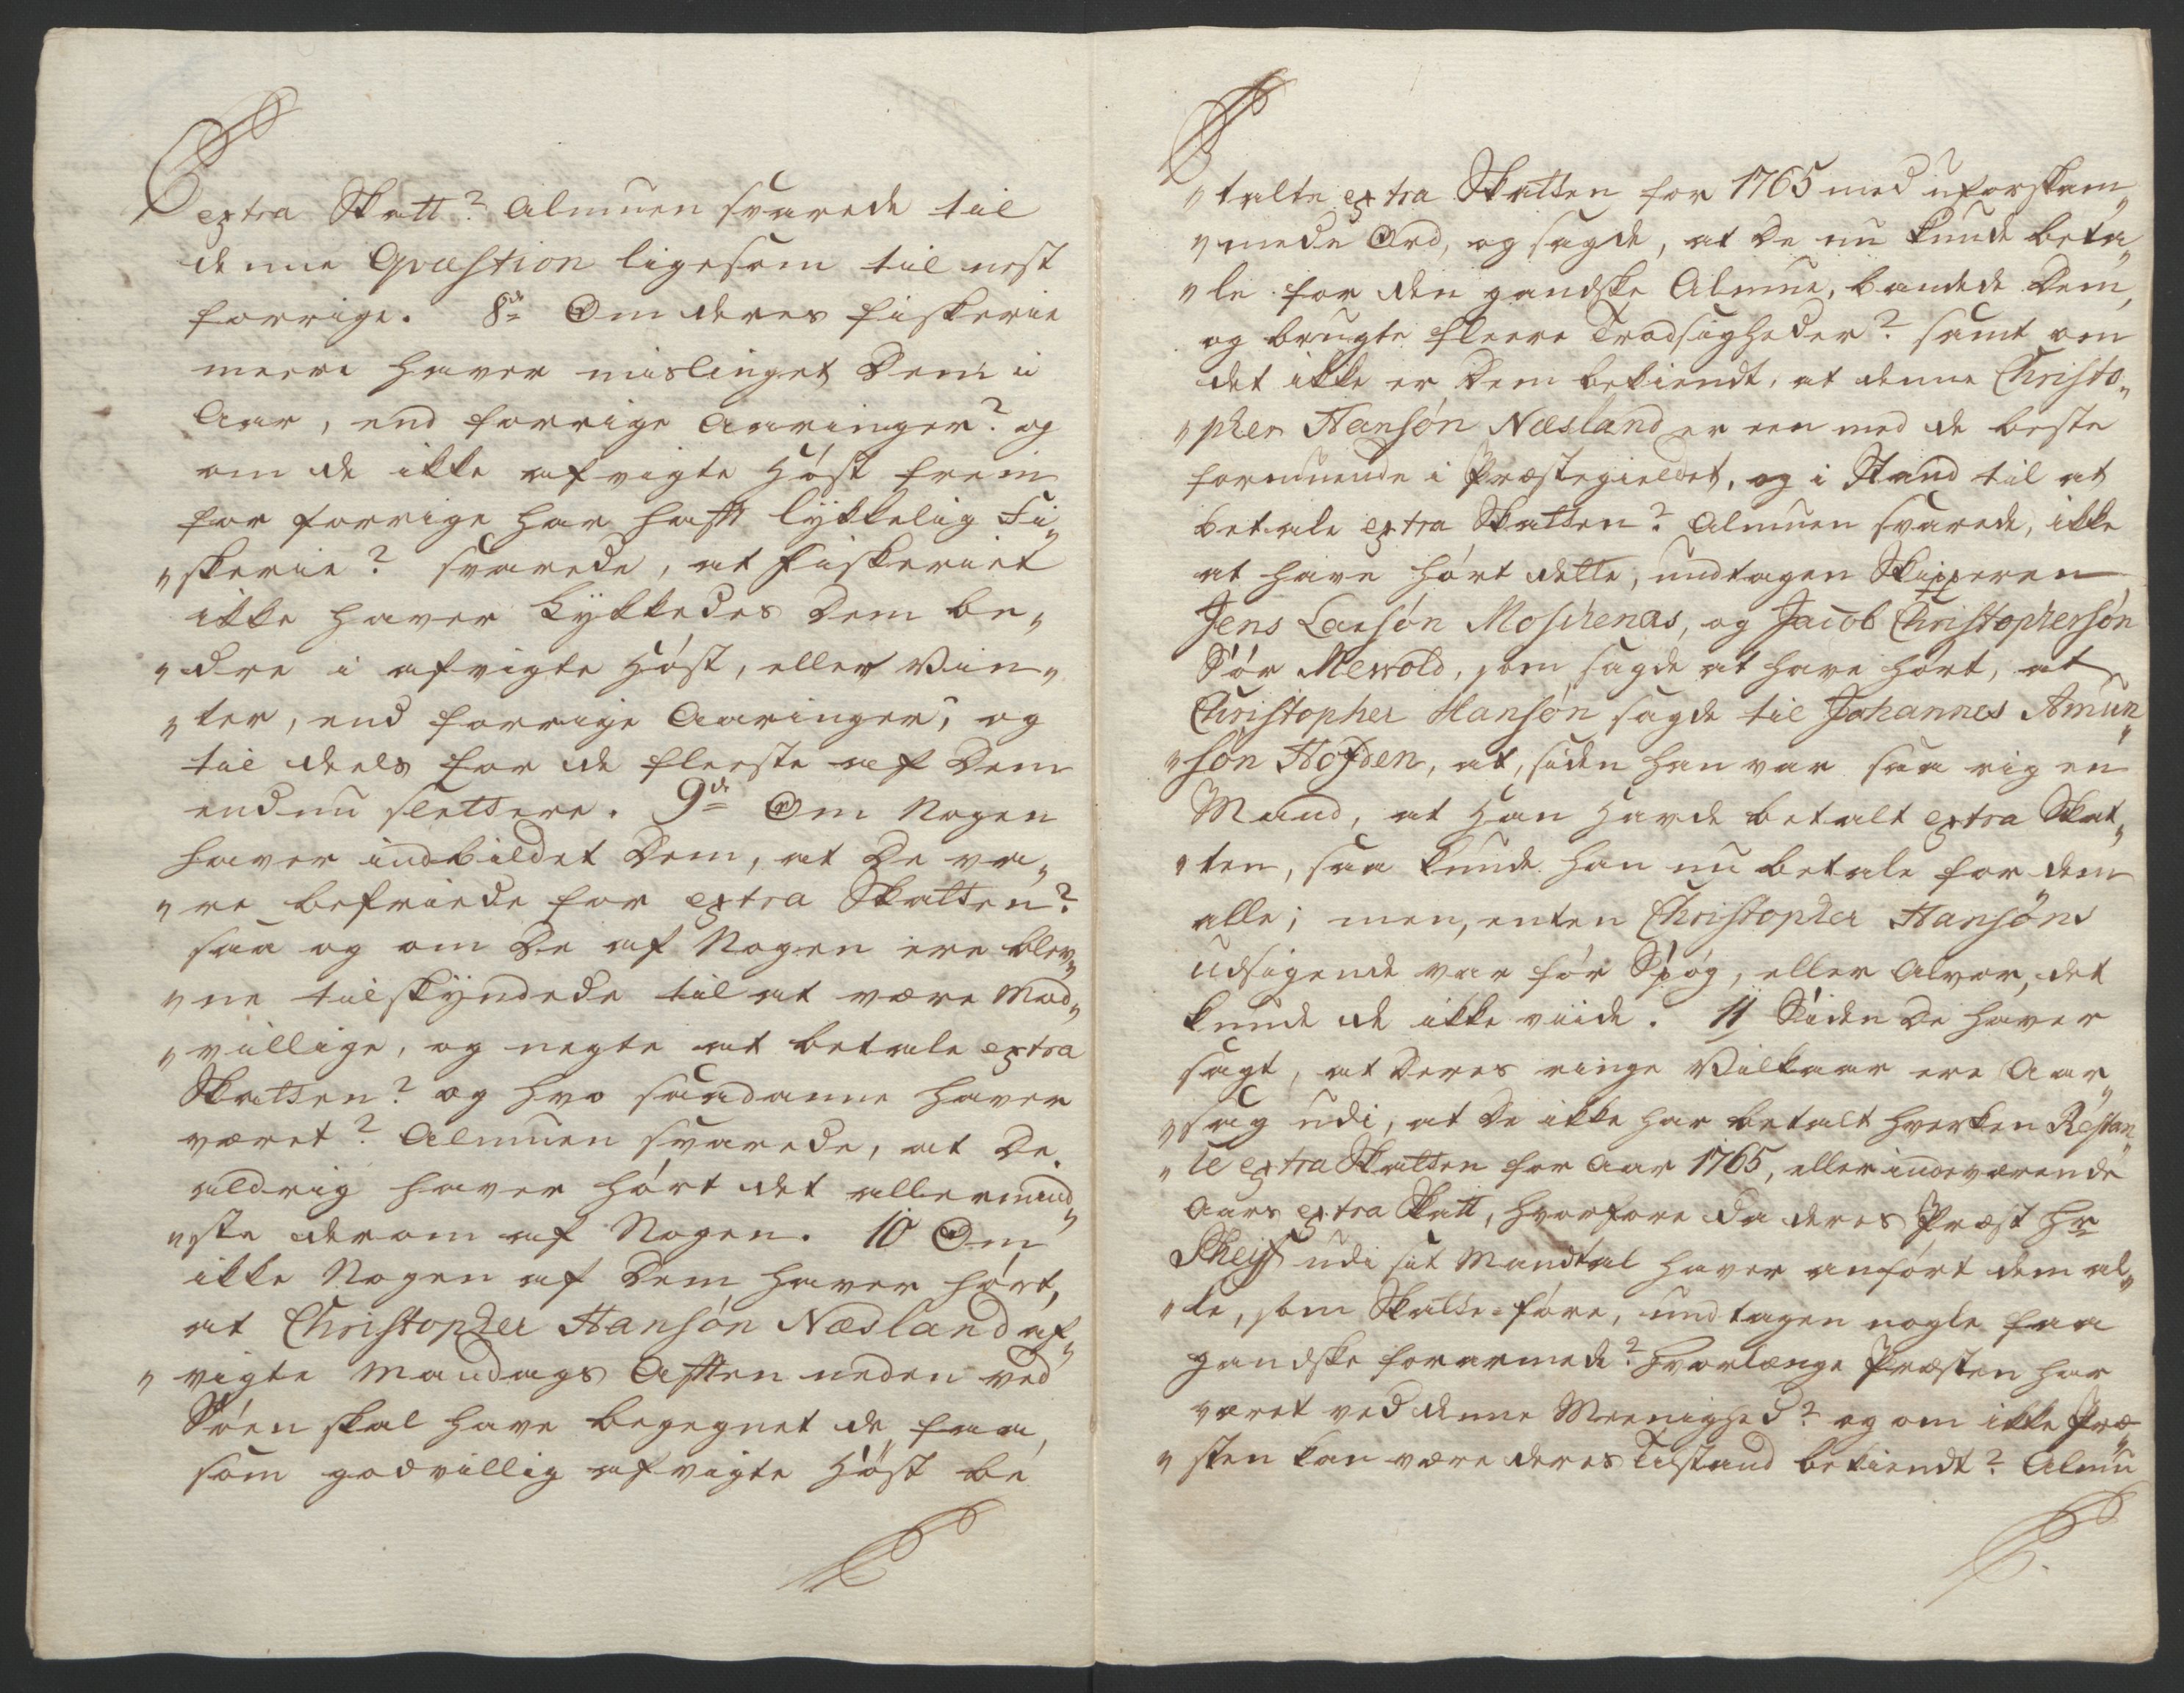 extra Skatt? Almuen svarede til
denne Qvæstion ligesom til nest
forrige. 8de Om deres fiskerie
meere haver mislinget Dem i
Aar, end forrige Aaringer? og
om de ikke afvigte Høst frem
for forrige har hafft lykkelig Fi„
„skerie? svarede, at fiskeriet
ikke haver Lykkedes Dem be„
„dre i afvigte Høst, eller Vin„
„ter, end forrige Aaringer, og
til deels for de fleeste af Dem
endnu slettere. 9de Om Nogen
haver indbildet Dem, at De va„
„re befriede for extra Skatten?
saa og om De af Nogen ere blev„
„ne tilskyndede til at være Mod„
„villige, og negte at betale extra
Skatten? og hvo saadanne haver
været? Almuen svarede, at De
aldrig haver hørt det allermind„
„ste derom af Nogen. 10 Om
ikke Nogen af Dem haver hørt,
at Christopher Hansøn Næsland af„
„vigte Mandags Aften neden ved
Søen skal have begegnet de faa,
som godvillig afvigte Høst be
„talte extra Skatten for 1765 med uforskam„
„mede Ord, og sagde, at De nu kunde beta„
„le for den gandske Almue, bandede Dem,
og brugte fleere Trodsigheder? samt om
det ikke er Dem bekiendt, at denne Christo„
„pher Hansøn Næsland er een med de beste
formuende i Præstegieldet, og i Stand til at
betale extra Skatten? Almuen svarede, ikke
at have hørt dette, undtagen Skipperen
Jens Larsøn Moshenæs, og Jacob Christophersøn
Sør Mewold, som sagde at have hørt, at
Christopher Hansøn sagde til Johannes Amun„
„søn Hofden, at, siden han var saa rig en
Mand, at Han Havde betalt extra Skat„
„ten, saa kunde han nu betale for dem
alle; men, enten Christopher Hansøns
udsigende var før Spøg, eller Alvor, det
kunde de ikke viide. 11 Siden De haver
sagt, at Deres ringe Vilkaar ere Aar„
„sag udi, at De ikke har betalt hverken Restan„
„ce extra Skatten for Aar 1765, eller indeværende
Aars extra Skatt, hvorfore da deres Præst Hr
Sheyst udi sit Mandtal haver anført dem al„
„le, som Skatte-føre, undtagen nogle faa
gandske forarmede? Hvorlænge Præsten har
været ved denne Meenighed? og om ikke Præ„
„sten kan være deres Tilstand bekiendt? Almu